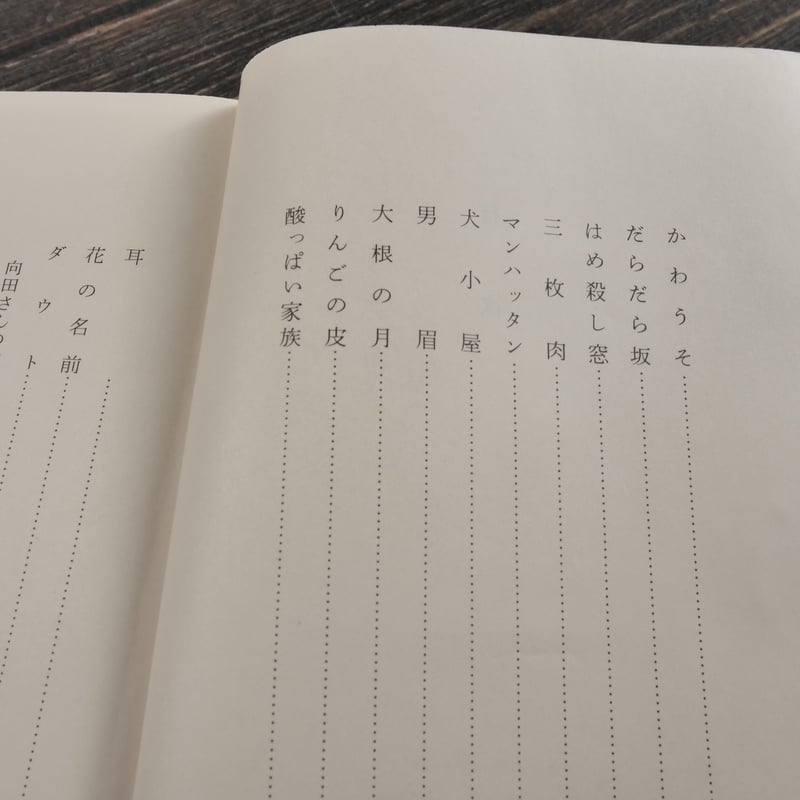 かわうそ
だらだら坂
はめ殺し窓
三枚肉
マンハッタン
犬小屋
男眉
大根の月
りんごの皮
酸っぱい家族
耳
花の名前
ダウト
向田さんの